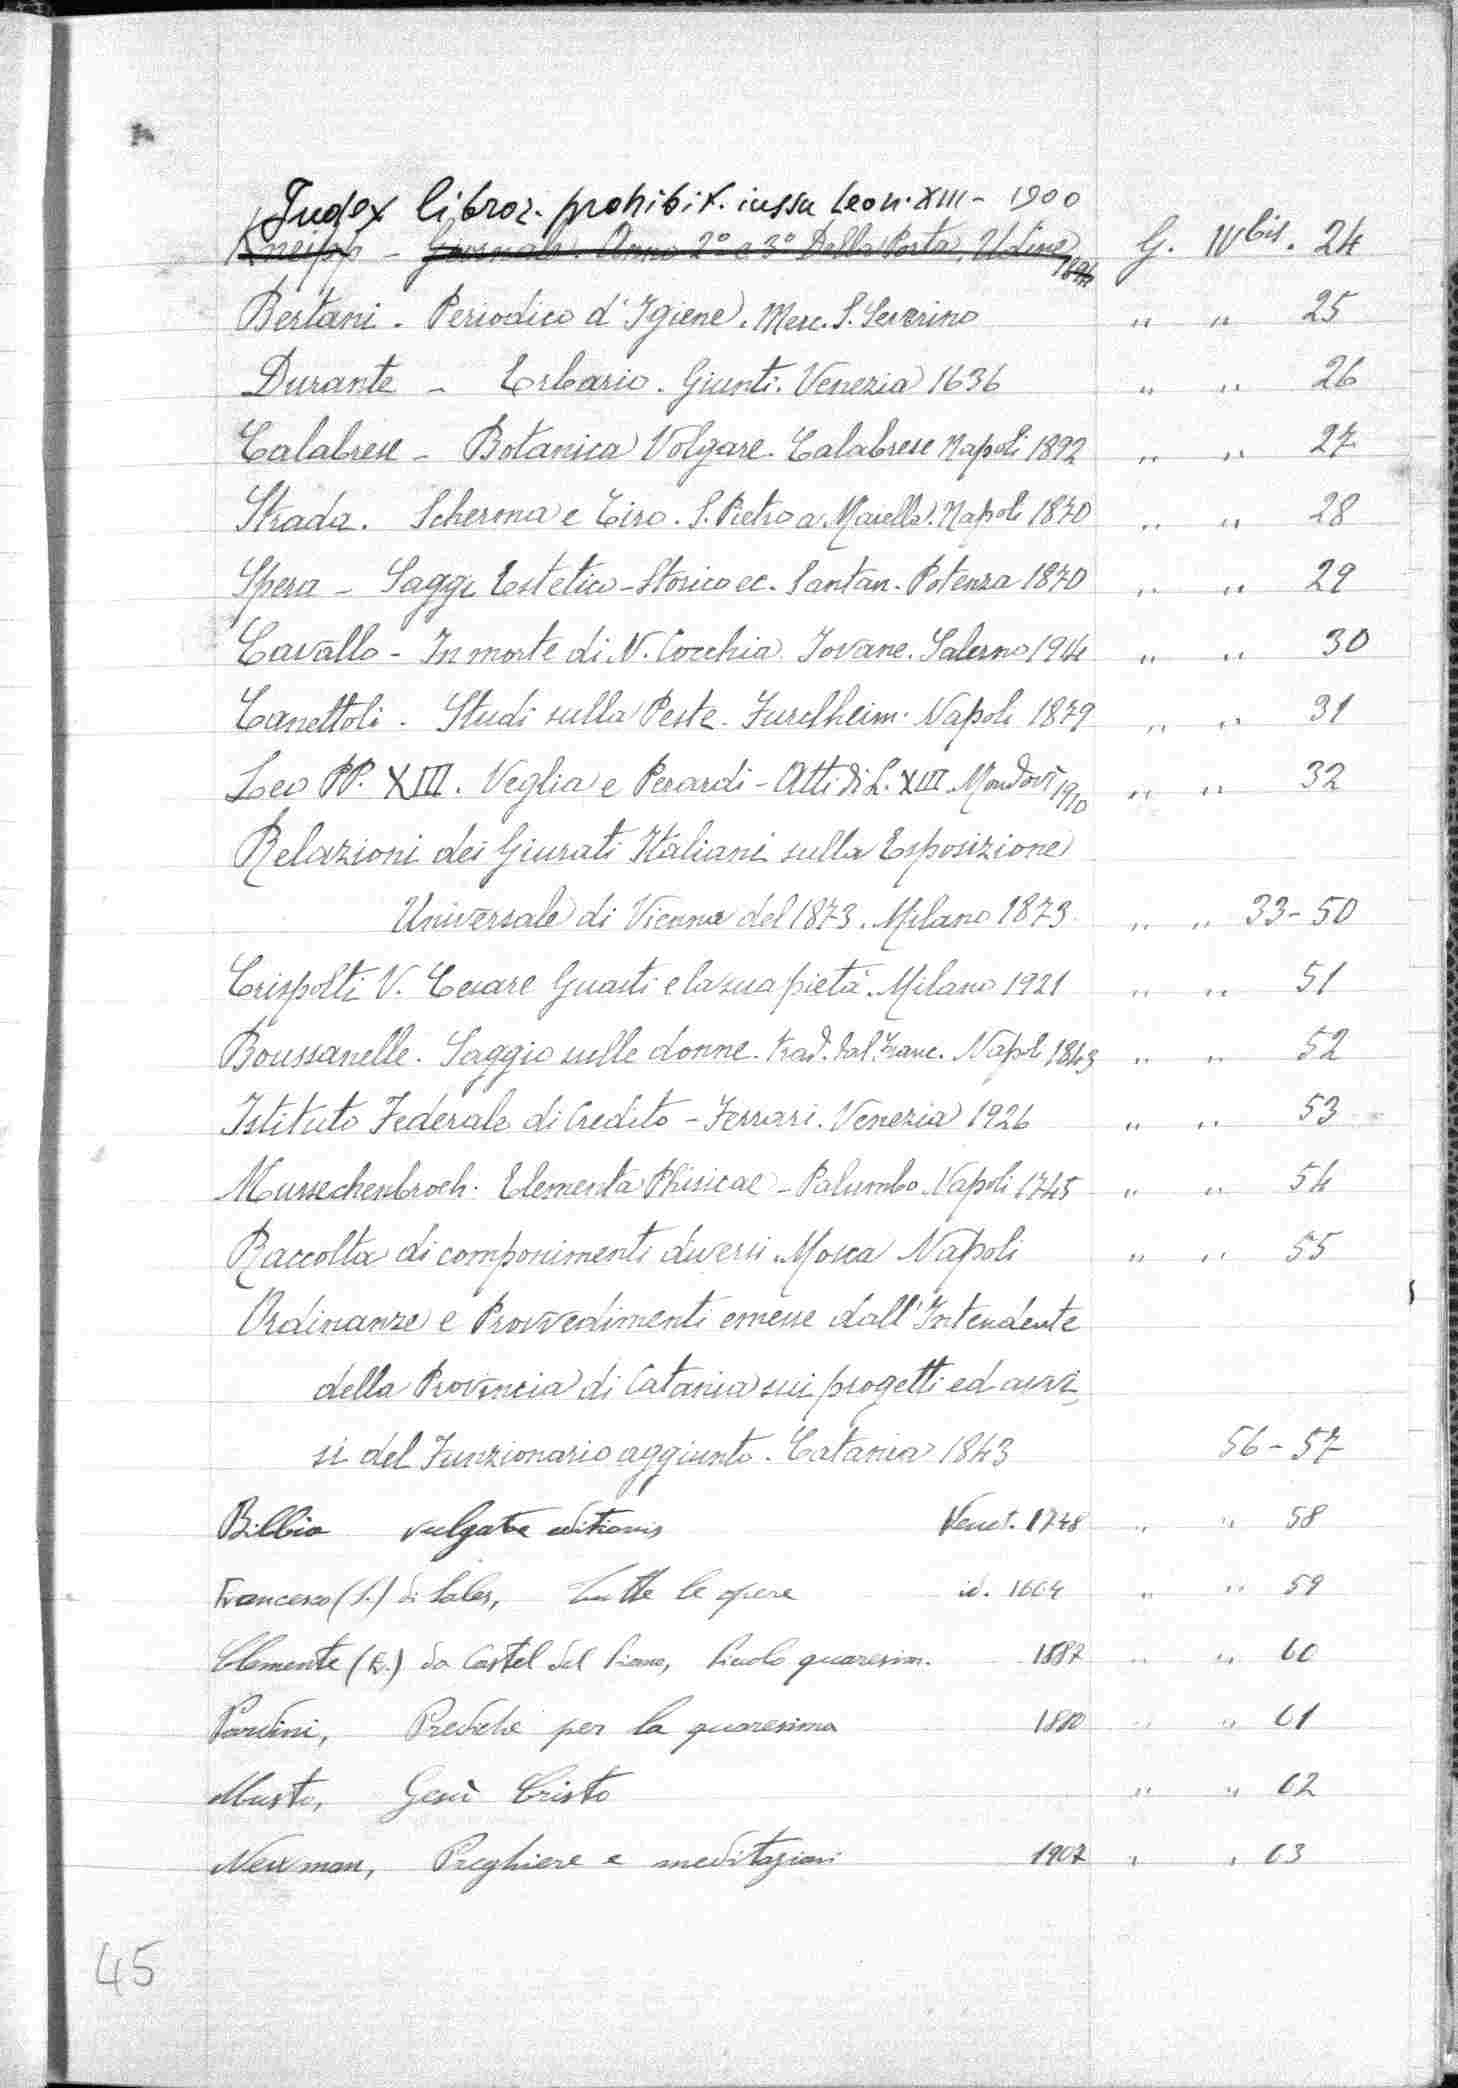 Index libror. prohibit. iussu Leon. XIII - 1900
Kneipp - Giornale. Anno 2° e 3° Della Porta, Udine G. IV bis. 24
Bertani. Periodico d'Igiene. Merc. S. Severino " " 25
Durante - Erbario. Giunti. Venezia 1636 " " 26
Calabrese - Botanica Volgare. Calabrese Napoli 1892 " " 27
Strada. Scherma e Tiro. S. Pietro a Maiella. Napoli 1870 " " 28
Spera - Saggi Estetico-Storico ec. Santan. Potenza 1870 " " 29
Cavallo - In morte di N. Cocchia Jovane. Salerno 1944 " " 30
Canettoli. Studi sulla Peste. Furchheim. Napoli 1879 " " 31
Leo PP. XIII. Veglia e Perardi - Atti di L. XIII. Mondovì 1910 " " 32
Relazioni dei Giurati Italiani sulla Esposizione
Universale di Vienna del 1873. Milano 1873 " " 33-50
Crispolti V. Cesare Guasti e la sua pietà. Milano 1921 " " 51
Boussanelle. Saggio sulle donne. trad. dal Franc. Napoli 1843 " " 52
Istituto Federale di Credito - Ferrari. Venezia 1926 " " 53
Mussechenbroch. Elementa Phisicae - Palumbo. Napoli 1745 " " 54
Raccolta di componimenti diversi. Mosca Napoli " " 55
Ordinanze e Provvedimenti emesse dall'Intendente
della Provincia di Catania sui progetti ed avvi
si del Funzionario aggiunto. Catania 1843 56-57
Biblia vulgatae editionis Venet. 1748 " " 58
Francesco (S.) di Sales, Tutte le opere id. 1664 " " 59
Clemente da Castel del Piano, quaresim. 1887 " " 60
Prediche per la quaresima 1880 " " 61
Musto, Gesù Cristo " " 62
Newman, Preghiere e meditazioni 1907 " " 63
45